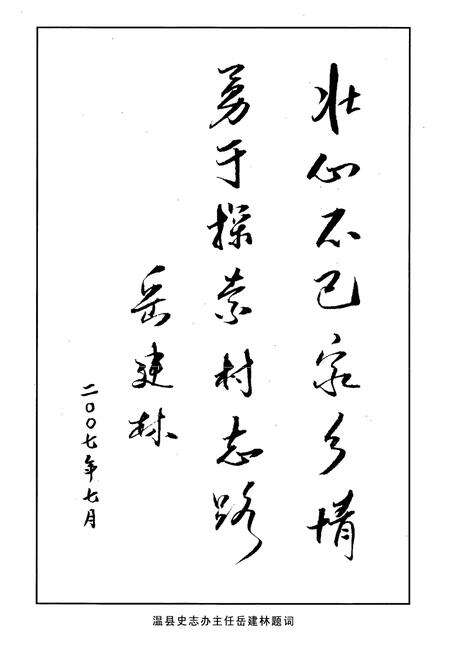 壮心不已家乡情
勇于探索村志路
岳建林
二〇〇七年七月
温县史志办主任岳建林题词